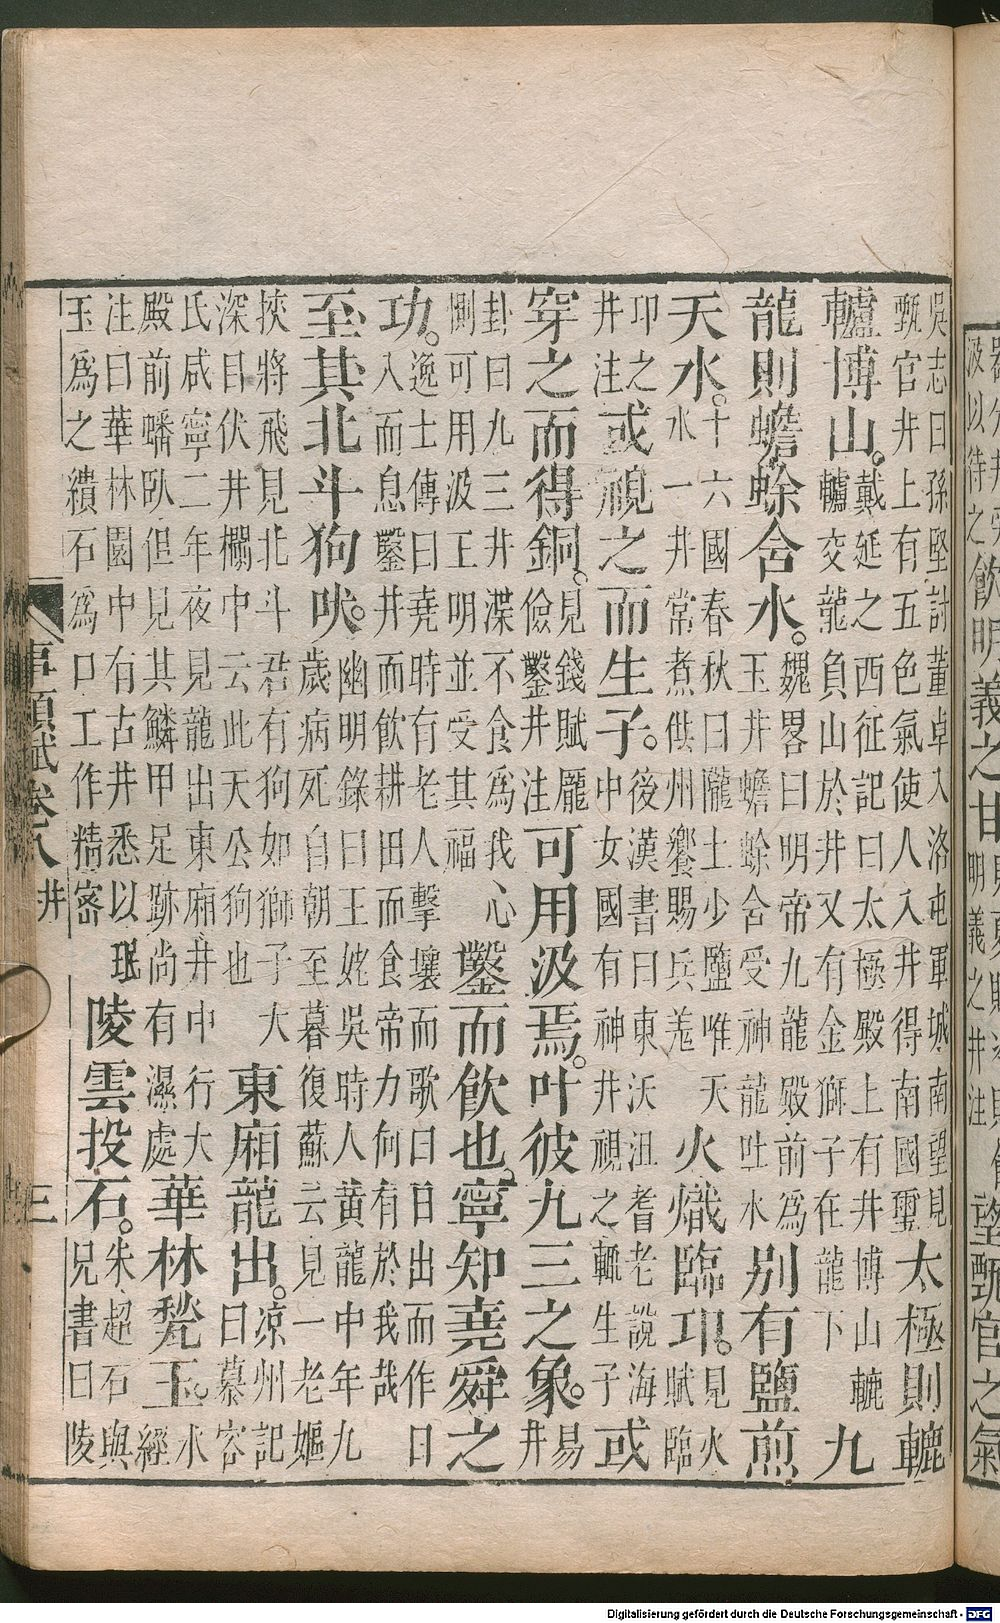 汲以待之
飲明義之甘
明義之井注
望甄官之氣
吳志曰孫堅討董卓入洛屯軍城南望見
甄官井上有五色氣使人入井得南國璽
太極則轆
轤博山。
戴延之西征記曰太極殿上有井博山轆
轤交龍負山於井又有金獅子在龍下
九
龍則蟾蜍含水。
魏畧曰明帝九龍殿前為
玉井蟾蜍含受神龍吐水
別有鹽煎
天水。
十六國春秋曰隴土少鹽唯天
水一井常煮供州饗賜兵羗
火熾臨卭。
見火
賦臨
卭之
井注
或視之而生子。
後漢書曰東沃沮耆老說海
中女國有神井視之輒生子
或
穿之而得銅。
見錢賦龐
儉鑿井注
可用汲焉。叶彼九三之象。
易
井
卦曰九三井渫不食為我心
惻可用汲王明並受其福
鑿而飲也。寧知堯舜之
功。
逸士傳曰堯時有老人擊壤而歌曰日出而作日
入而息鑿井而飲耕田而食帝力何有於我哉
至其北斗狗吠。
幽明錄曰王姥吳時人黃龍中年九
歲病死自朝至暮復蘇云見一老嫗
挾將飛見北斗君有狗如獅子大
深目伏井欄中云此天公狗也
東廂龍出。
涼州記
曰慕容
氏咸寧二年夜見龍出東廂井中行大
殿前蟠臥但見其鱗甲足跡尚有濕處
華林甃玉。
水
經
注曰華林園中有古井悉以珉
玉為之繢石為口工作精密
陵雲投石。
朱超石與
兄書曰陵
事類賦卷八 井 三
Digitalisierung gefördert durch die Deutsche Forschungsgemeinschaft - DFG